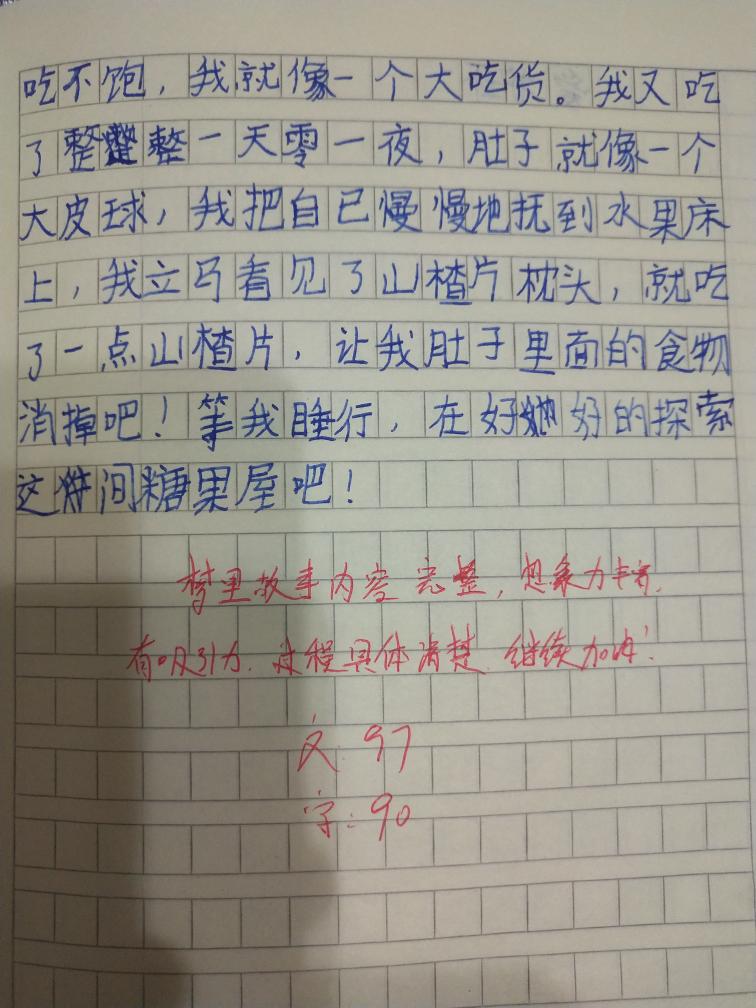 吃不饱，我就像一个大吃货。我又吃
了整整整一天零一夜，肚子就像一个
大皮球，我把自己慢慢地抚到水果床
上，我立马看见了山楂片枕头，就吃
了一点山楂片，让我肚子里面的食物
消掉吧！等我睡行，在好好的探索
这间糖果屋吧！
梦里故事内容完整，想象力丰富，
有吸引力.过程具体清楚.继续加油!
文:97
字:90